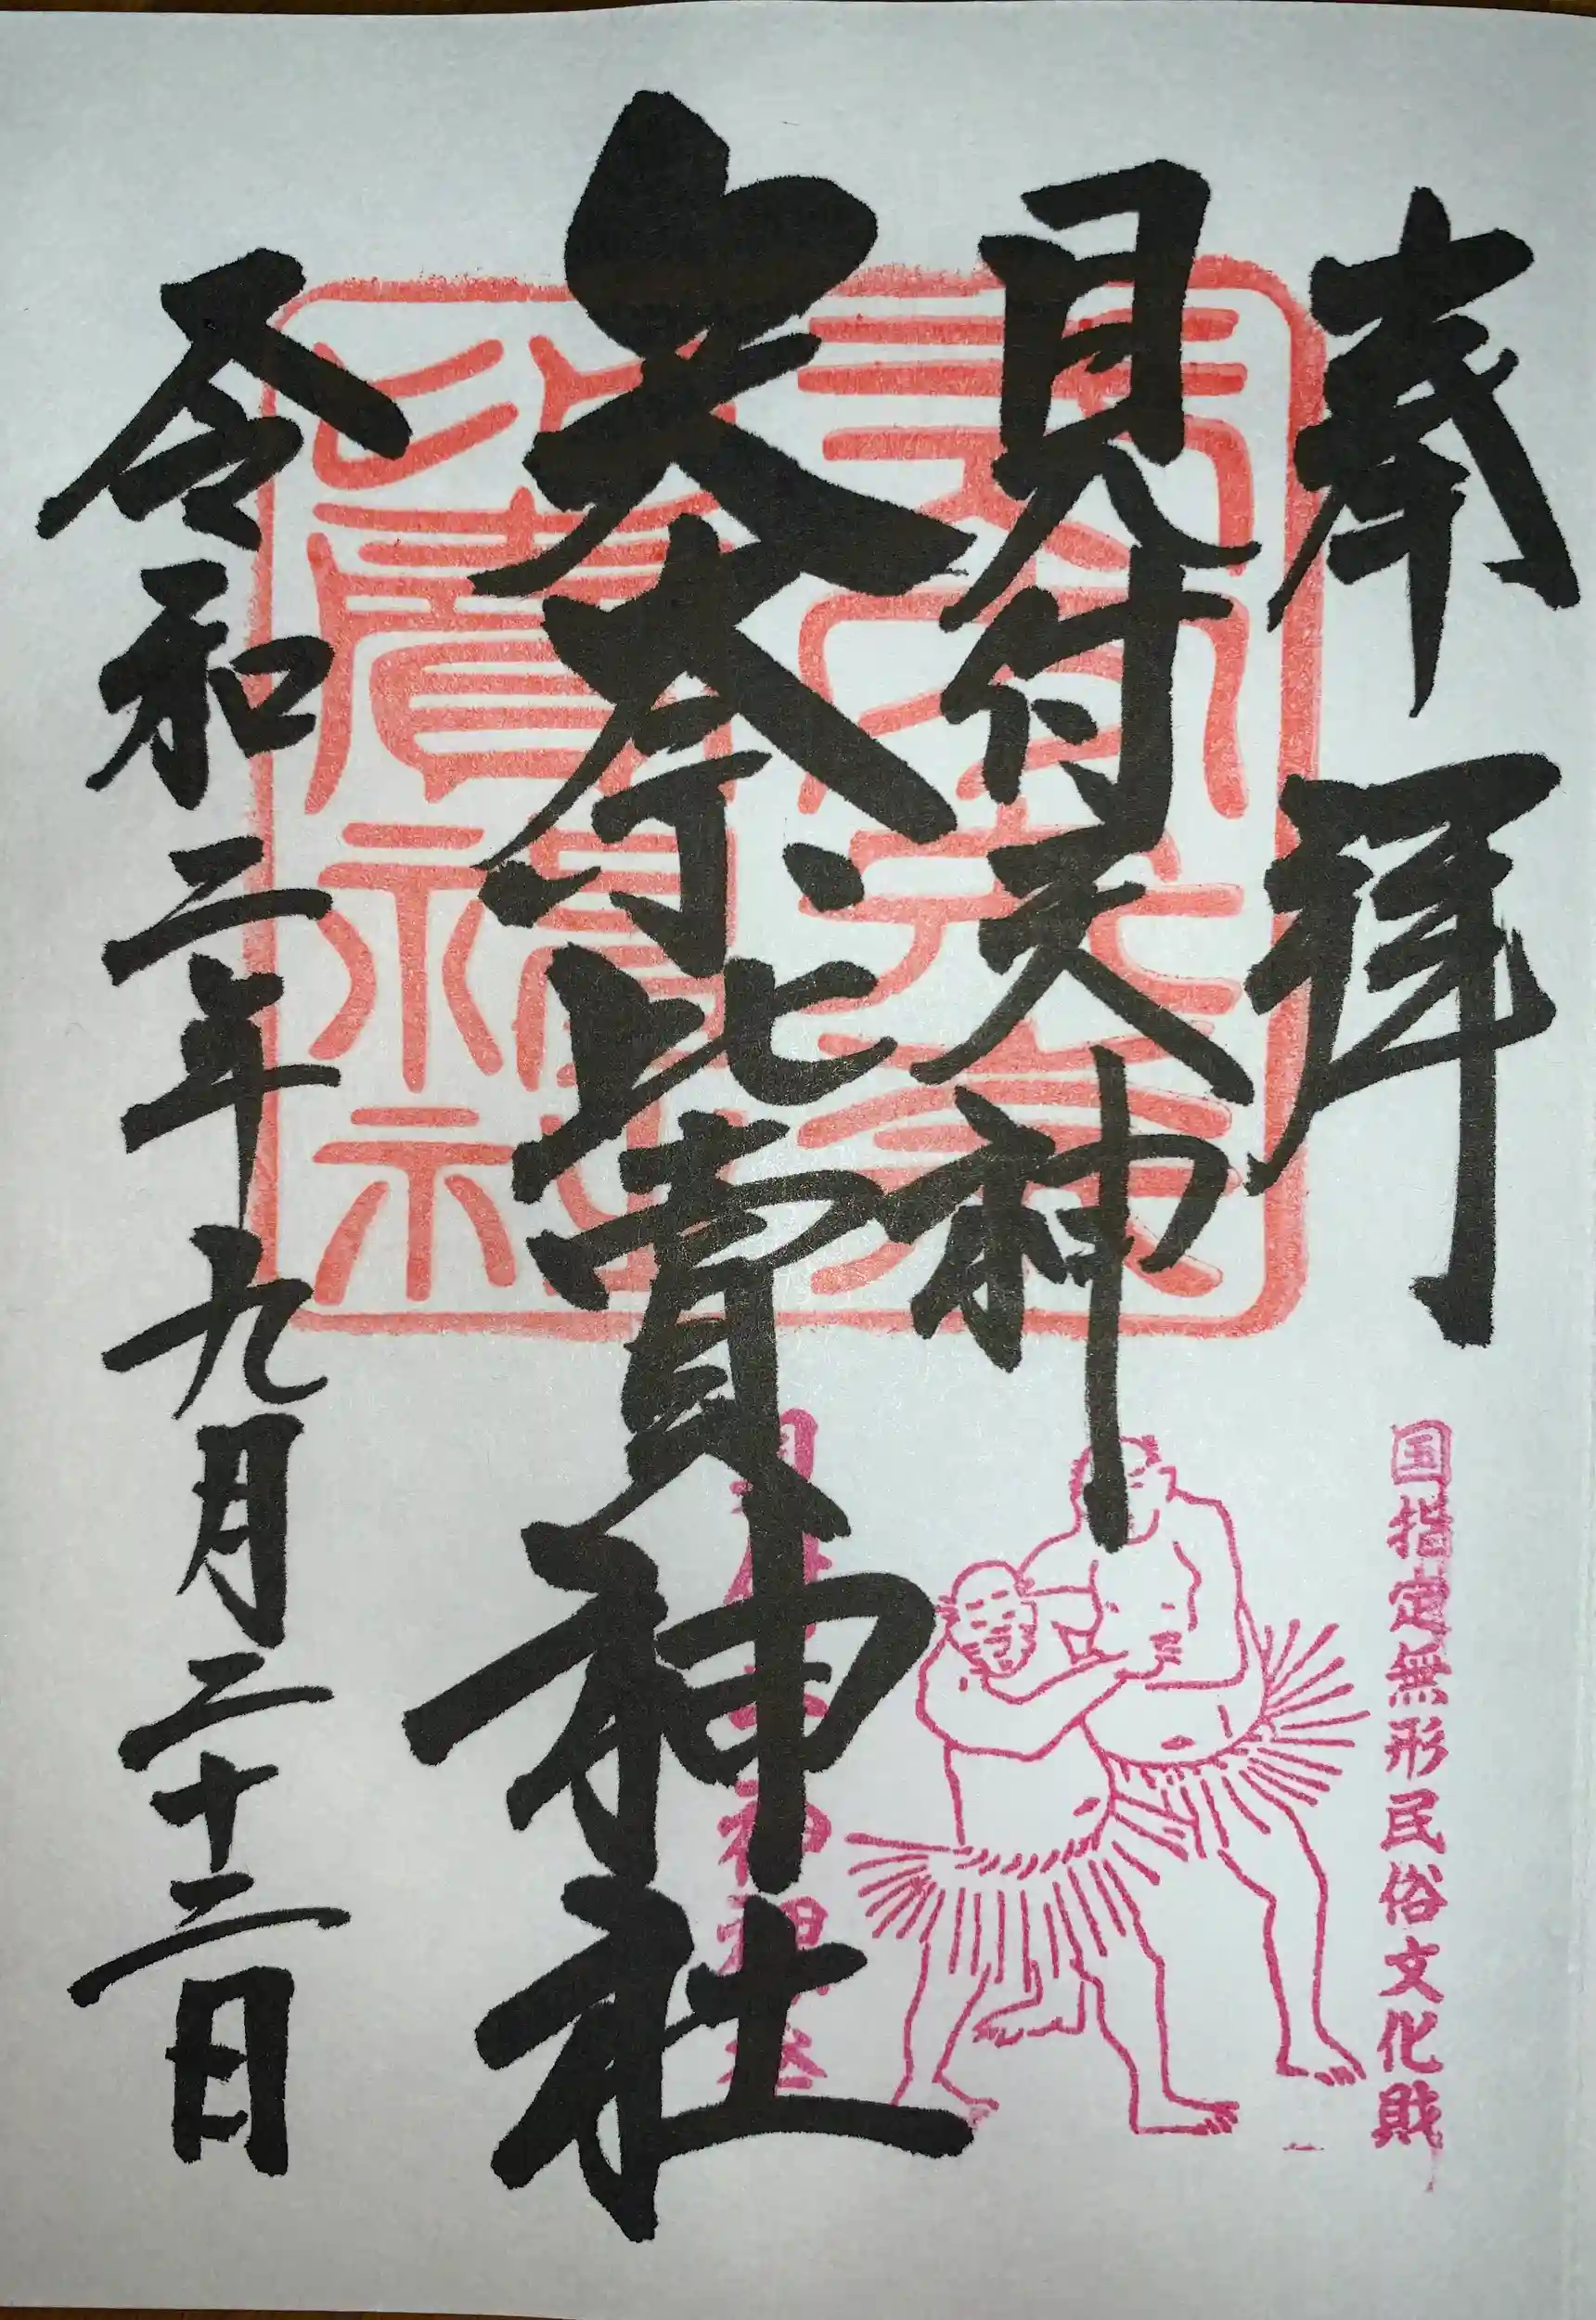 奉拝
見付天神
矢奈比賣神社
令和二年九月二十二日
国指定無形民俗文化財